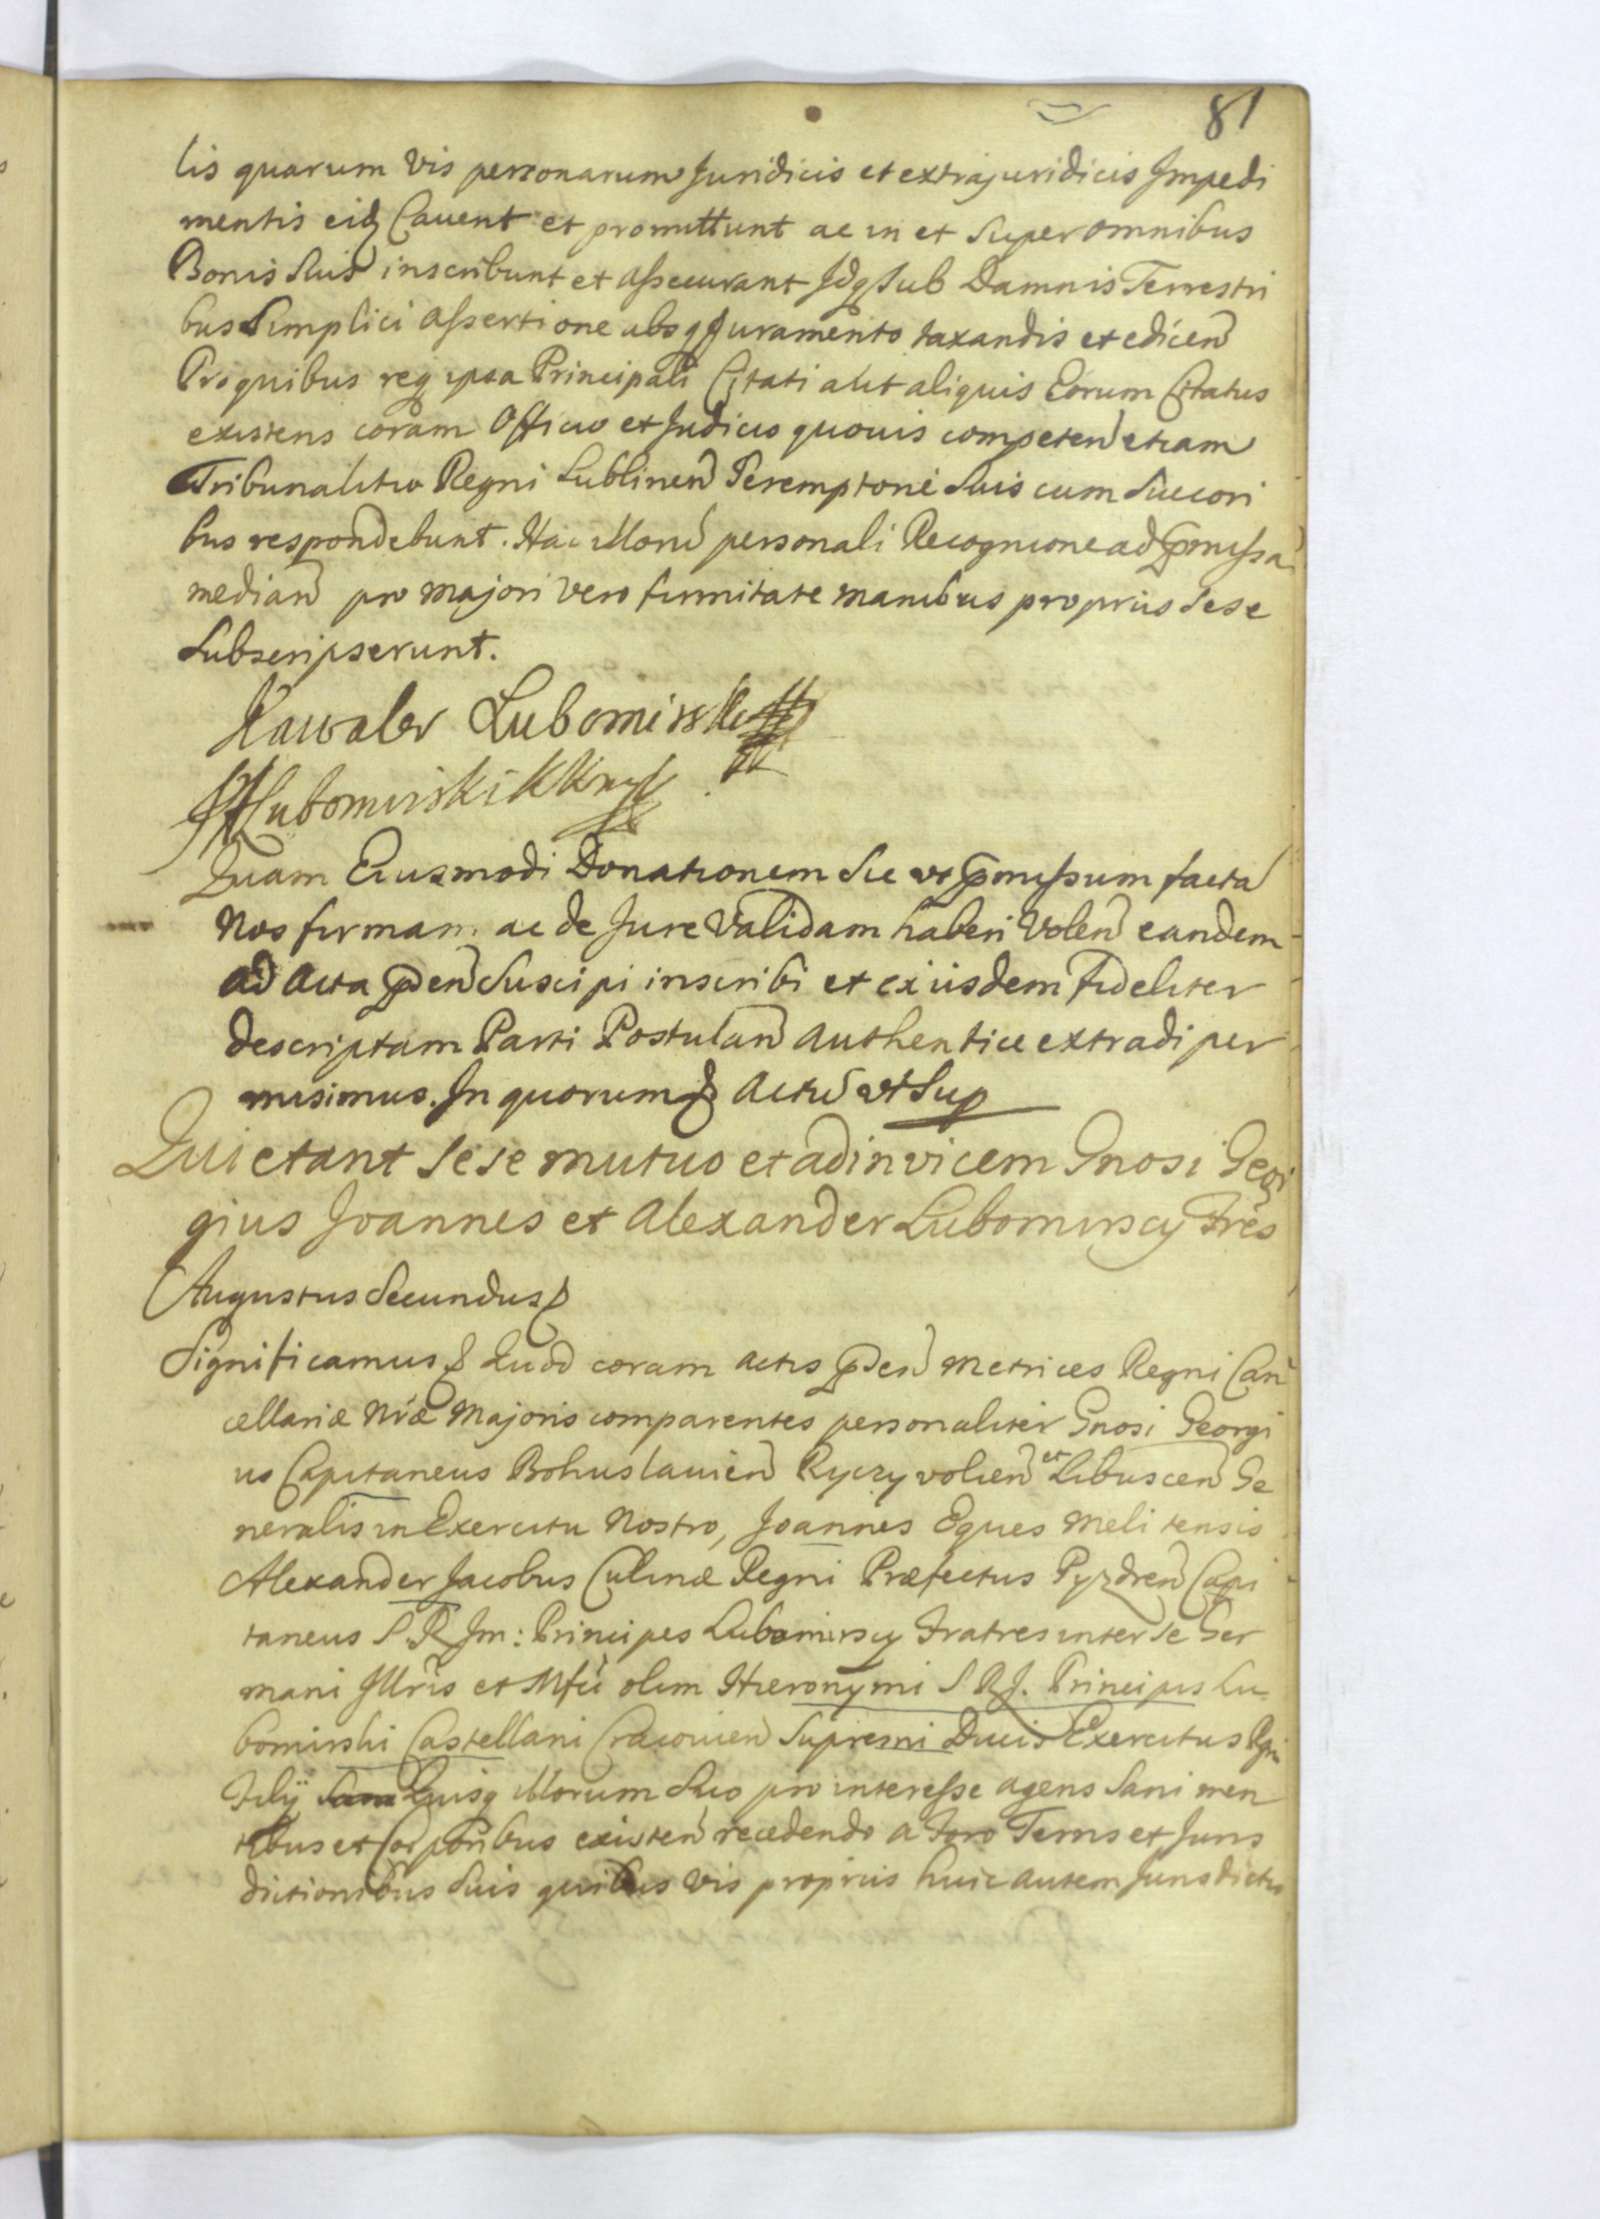 81
lis quarum vis personarum Juridicis et extrajuridicis Impedi
mentis eidq Cavent et promittunt ac in et super omnibus
Bonis suis inscribunt et assecurant Idq sub Damnis Terrestri
bus simplici assertione absq Juramento taxandis et edicen
Pro quibus req ipsa Principali Citati aut aliquis Eorum Citatus
existens coram Officio et Judicio quovis competen etiam
Tribunalitio Regni Lublinen Peremptorie suis cum succori
bus respondebunt. Hac Illorum personali Recognicione ad præmissa
median pro majori vero firmitate manibus proprijs sese
subscripserunt.
Kawaler Lubomirski
Lubomirski K Kny
Quam Eiusmodi Donationem sic ut præmissum facta
Nos firmam ac de Jure Validam haberi Volen eandem
ad Acta præsen suscipi inscribi et exijsdem fideliter
descriptam Parti Postulan authentice extradi per
misimus. In quorum & Actu ut Sup
Quietant sese mutuo et adinvicem Gnosi Geor
gius Joannes et Alexander Lubomirscy Fres
Augustus Secundus &
Significamus & Quod coram actis præsen Metrices Regni Can
cellariæ Nræ Majoris comparentes personaliter Gnosi Georgi
us Capitaneus Bohuslavien Ryczyvolien et Libuscen Ge
neralis in Exercitu Nostro, Joannes Eques Melitensis
Alexander Jacobus Culinæ Regni Præfectus Pyzdren Capi
taneus S. R. Im: Principes Lubomirscy Fratres inter se Ger
mani Illris et Mfci olim Hieronymi S R J. Principis Lu
bomirski Castellani Cracovien Supremi Ducis Exercitus Rgni
Filij Quisq Illorum suo pro interesse agens Sani men
tibus et Corporibus existen recedendo a Foro Terris et Juris
dictionibus suis quibus vis proprijs huic autem Jurisdictio